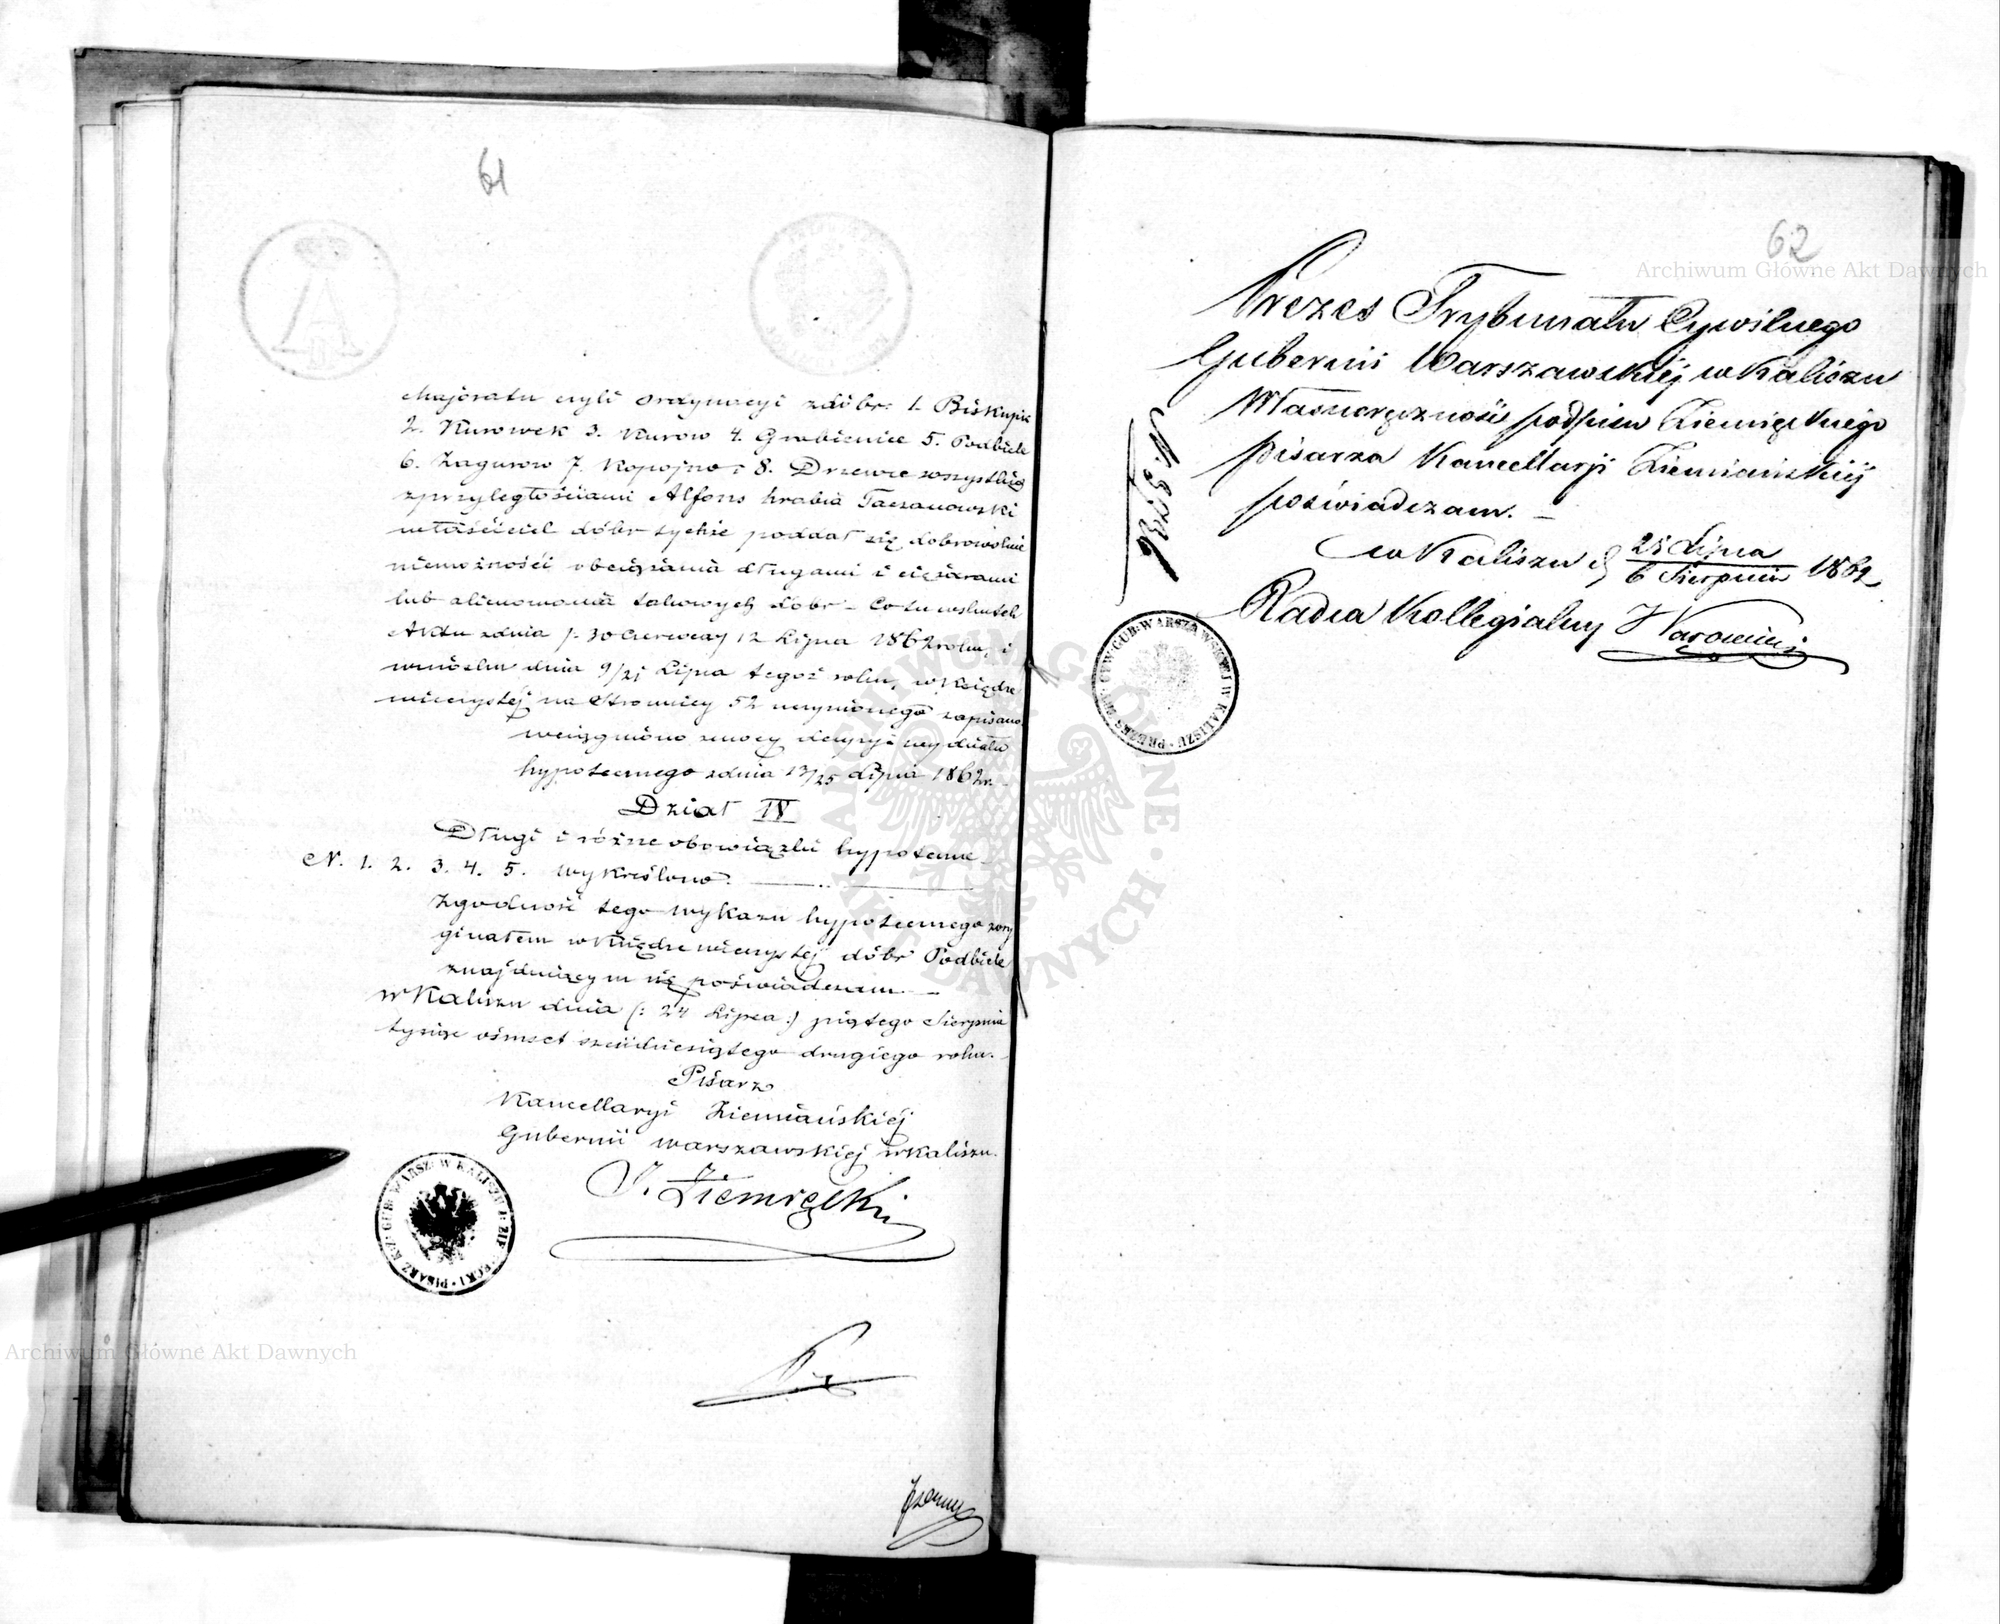 61
Majoratu czyli ordynacyi zdóbr: 1. Biskupice
2. Kurowek 3. Kurow 4. Grabienice 5. Podbiele
6. Zagurow 7. Kopojno i 8. Drzewce wszystkich
zprzyległościami Alfons hrabia Taczanowski
właściciel dóbr tychże poddał się dobrowolnie
niemożności obciążania długami i ciężarami
lub alienowania takowych dóbr – Co tu wskutek
Aktu zdnia /: 30 Czerwca / 12 Lipca 1862 roku, i
wniosku dnia 9/21 Lipca tegoż roku, w Księdze
wieczystéj na Stronicy 52 uczynionego zapisano.
wciągniono zmocy decyzyi wydziału
hypotecznego zdnia 13/25 Lipca 1862 r.
Dział IV
Długi i różne obowiązki hypoteczne
N. 1. 2. 3. 4. 5. wykreślono.
Zgodność tego wykazu hypotecznego zory
ginałem w Księdze wieczystej dóbr Podbiele
znajdującym się poświadczam –
w Kaliszu dnia (: 24 Lipca :) piątego Sierpnia
tysiąc ośmset sześćdziesiątego drugiego roku.
Pisarz
Kancellaryi Ziemiańskiéj
Gubernii warszawskiej w Kaliszu.
J. Ziemięcki
PISARZ K. Z. GUB. WARSZ. W KALISZU
62
Prezes Trybunału Cywilnego
Gubernii Warszawskiéj w Kaliszu
Własnoręczność podpisu Ziemięckiego
Pisarza Kancellaryi Ziemiańskiéj
poświadczam. –
w Kaliszu d 25 Lipca / 6 Sierpnia 1862
Radca Kollegialny
PREZES TRY. CYW. GUB. WARSZAWSKIEJ W KALISZU
Archiwum Główne Akt Dawnych
Archiwum Główne Akt Dawnych
ARCHIWUM GŁÓWNE AKT DAWNYCH